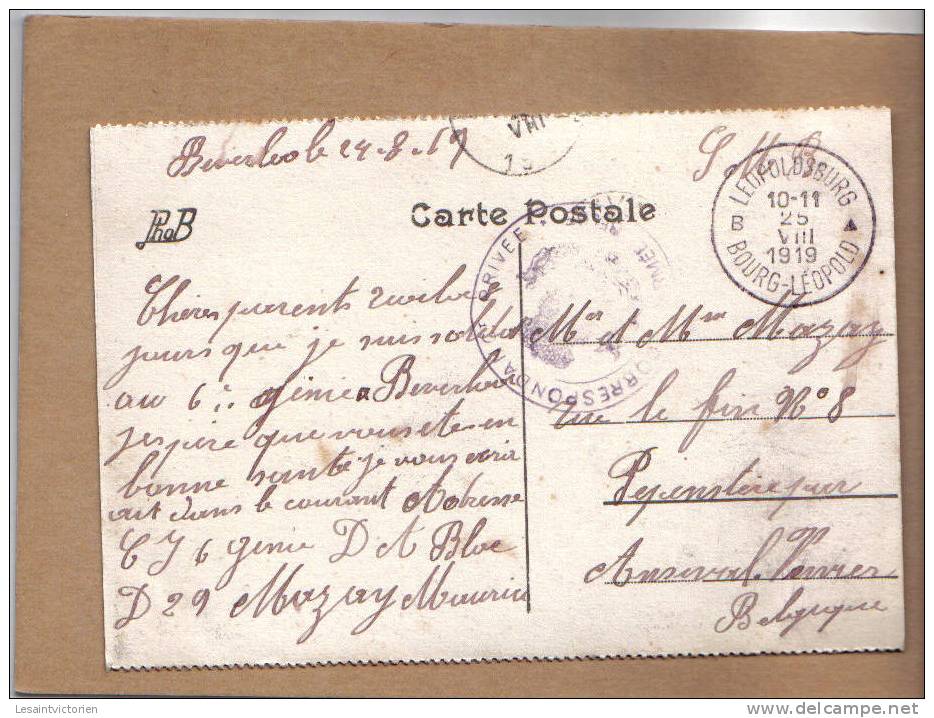 Beverloo le 24-8-19
S M B
VIII
19
LEOPOLDSBURG
10-11
B 25
VIII
1919
BOURG-LEOPOLD
PhoB
Carte Postale
CORRESPONDANCE PRIVEE
Chères parents
jours que je suis soldat
au 6ie génie a Beverloo
jespère que vous ete en
bonne santé je vous
dans le courant Adresse
C J 6 génie D A Bloc
D 29 Mazay Maurice
Mer et Mme Mazay
rue le fin No 8
Pepinster par
Verviers
Belgique
Lesaintvictorien
delcampe.net